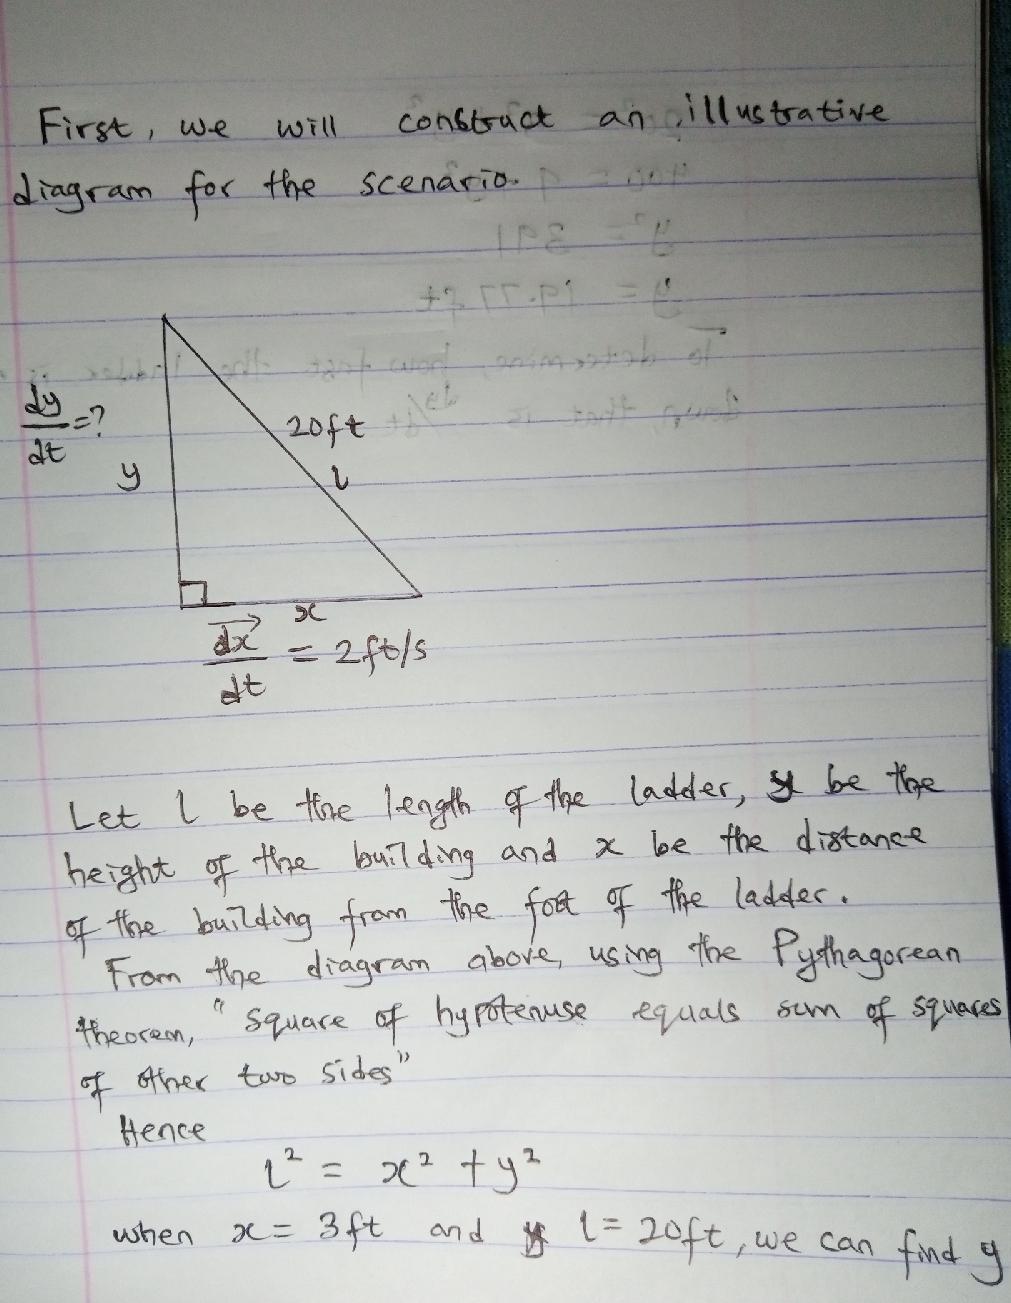 First, we will construct an illustrative
diagram for the scenario.
dy/dt = ?
y
20ft
l
x
dx/dt = 2ft/s
Let l be the length of the ladder, y be the
height of the building and x be the distance
of the building from the foot of the ladder.
From the diagram above, using the Pythagorean
theorem, "square of hypotenuse equals sum of squares
of other two sides"
Hence
l² = x² + y²
when x = 3ft and l = 20ft, we can find y